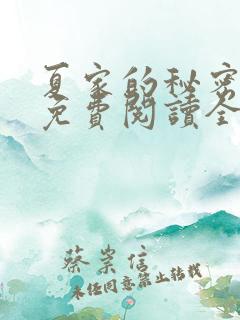 夏家的秘密
免費閱讀全
蔡崇信
未经同意禁止转载